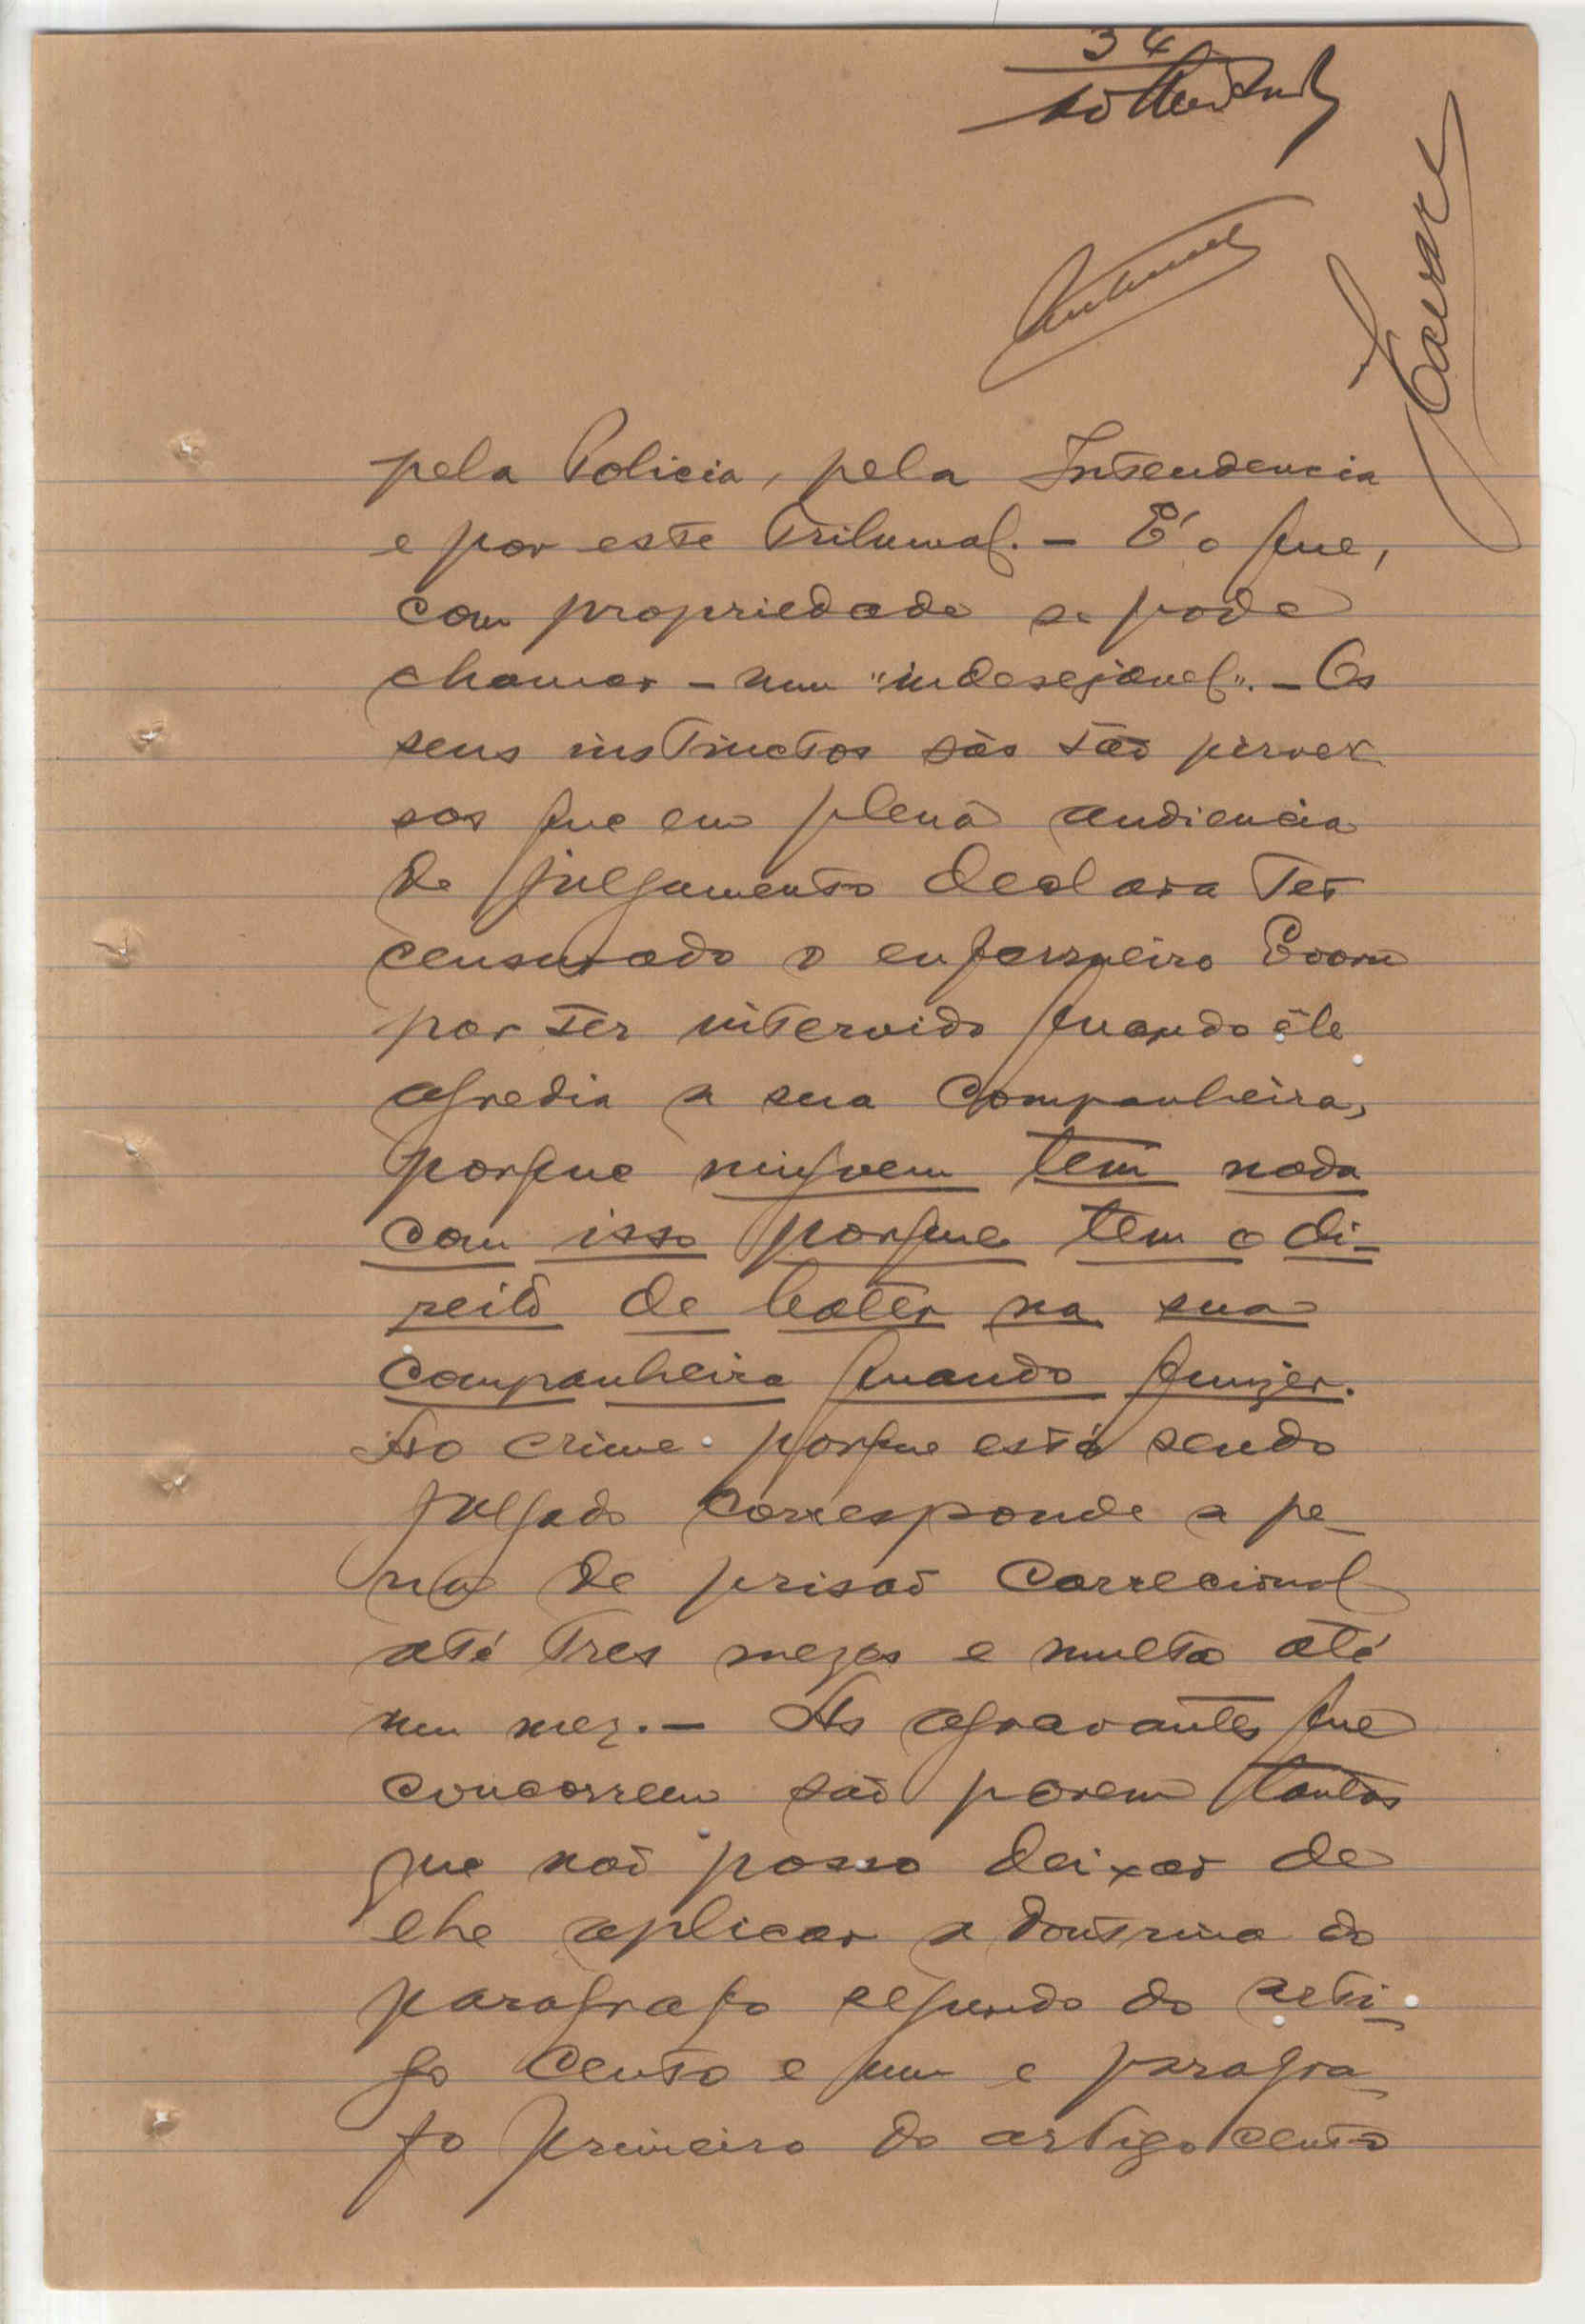 34
Tavares
pela Policia, pela Intendencia
e por este Tribunal. - É o que,
com propriedade se pode
chamar - um "indesejavel". - Os
seus instinctos são tão perver
sos que em plena audiencia
de julgamento declara ter
censurado o enfermeiro
por ter intervido quando êle
agredia a sua companheira,
porque ninguem tem nada
com isso porque tem o di-
reito de bater na sua
companheira quando quizer.
Ao crime porque está sendo
julgado corresponde a pe-
na de prisão correcional
até tres mezes e multa até
um mez. - As agravantes que
concorrem são porem tantas
que não posso deixar de
lhe aplicar a doutrina do
paragrafo segundo do arti-
go cento e um e paragra-
fo primeiro do artigo cento